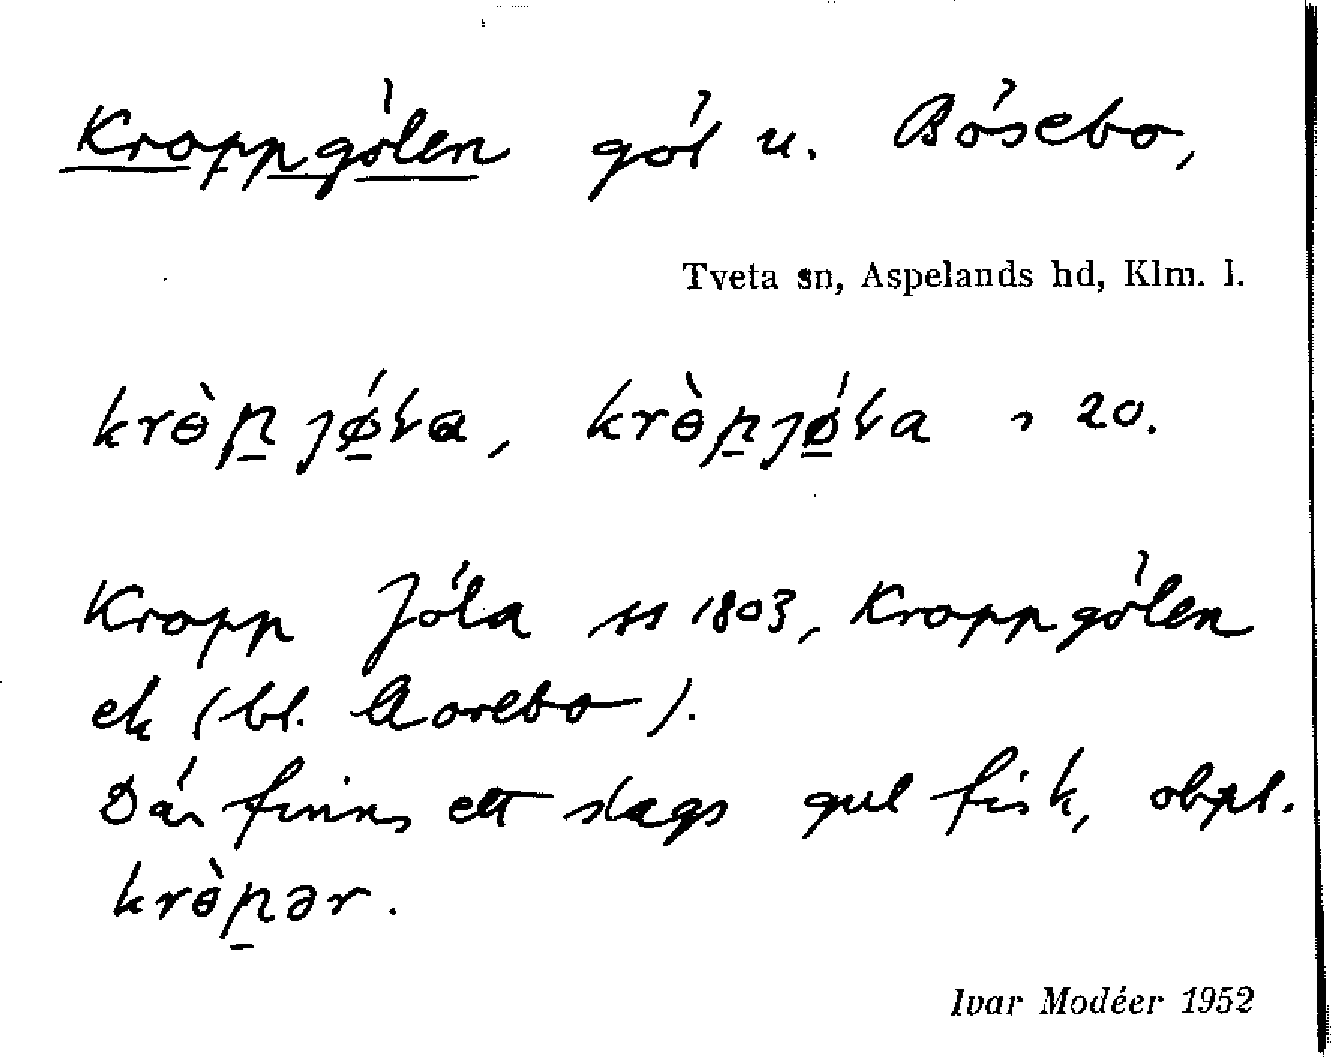 Kroppgölen göl u. Bösebo,
Tveta sn, Aspelands hd, Klm. l.
krɵ̀p̱ jǿ̱ɫa, krɵ̀p̱jǿ̱ɫa 20.
Kropp Jöla ss 1803, Kroppgölen
ek (bl. Aorebo).
Där finns ett slags gul fisk, obpl.
krɵ̀p̱ər.
Ivar Modéer 1952